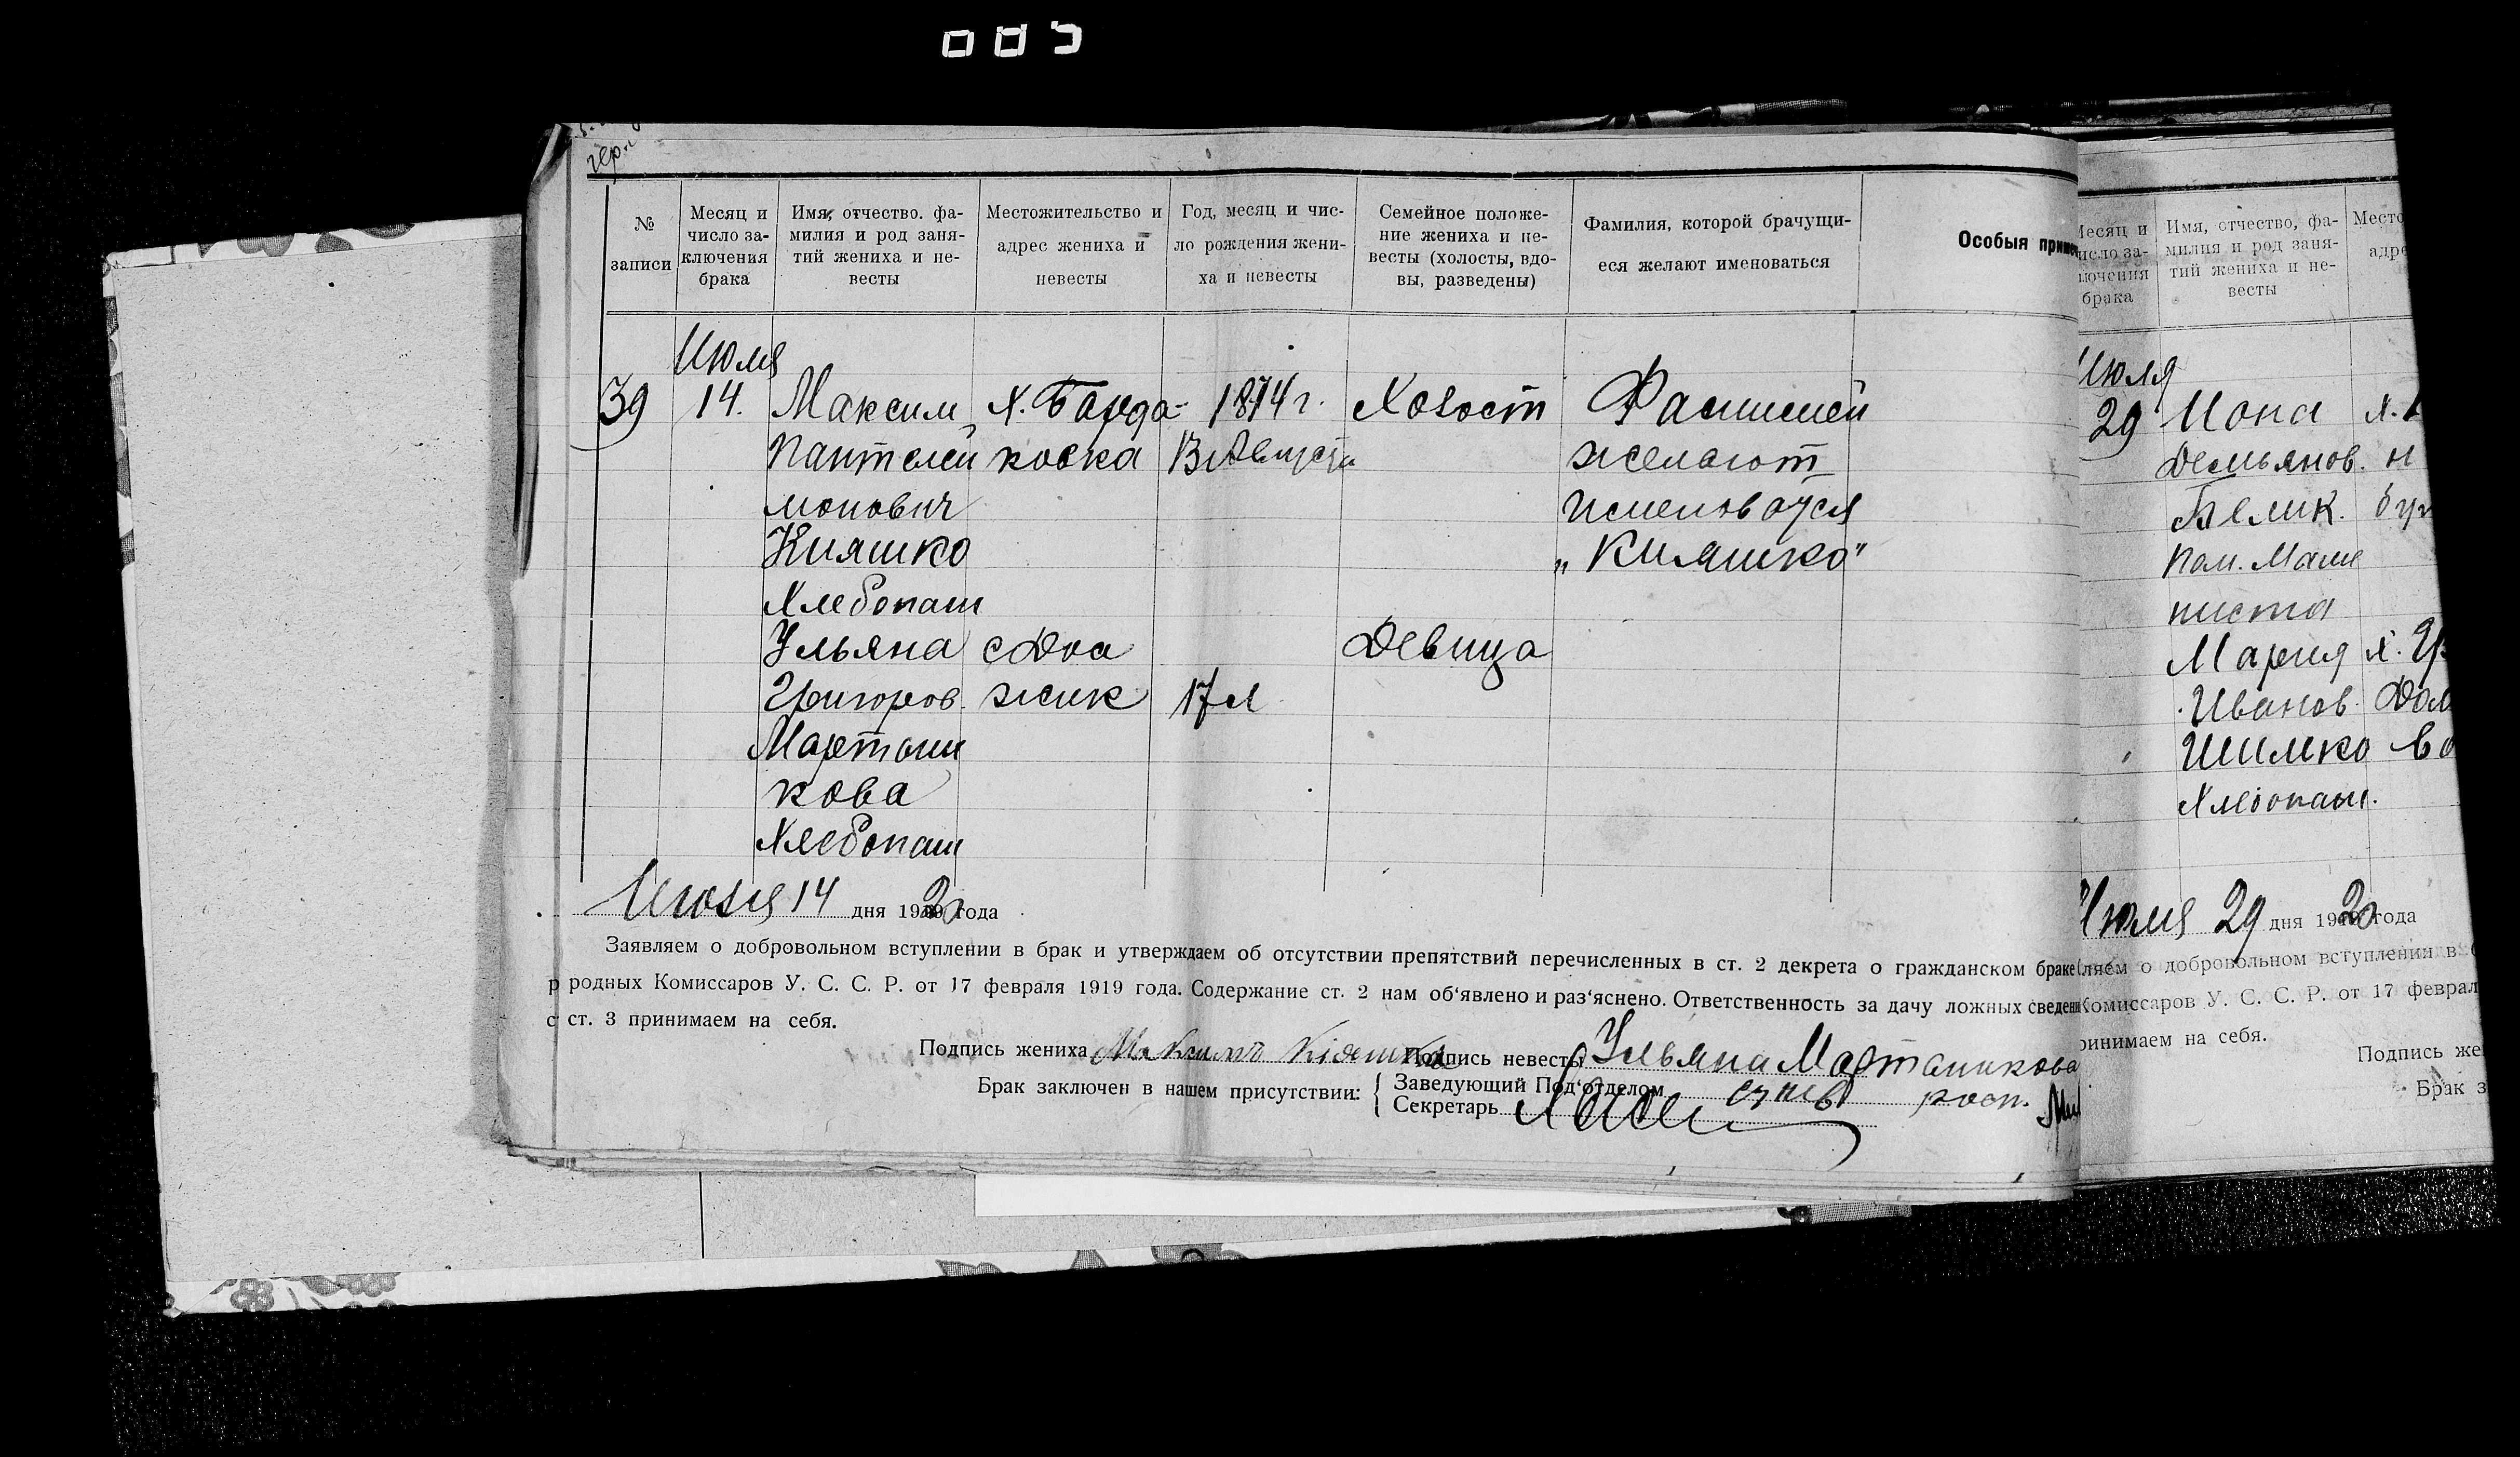 005
№ записи
Месяц и число заключения брака
Имя, отчество. фамилия и род занятий жениха и невесты
Местожительство и адрес жениха и невесты
Год, месяц и число рождения жениха и невесты
Семейное положение жениха и невесты (холосты, вдовы, разведены)
Фамилия, которой брачущиеся желают именоваться
Особыя
Июля
39 14. Максим х. Барда- 1874 г. Холост Фамилией
Пантелей ковка 13 Августа желают
монович именоваться
Кияшко „Кияшко"
Хлебопаш
Ульяна Девица
Григоров. 17 л
Марташ
кова
Хлебопаш
Июля 14 дня 192 года
Заявляем о добровольном вступлении в брак и утверждаем об отсутствии препятствий перечисленных в ст. 2 декрета о гражданском браке
р родных Комиссаров У. С. С. Р. от 17 февраля 1919 года. Содержание ст. 2 нам об‘явлено и раз‘яснено. Ответственность за дачу ложных сведен
с ст. 3 принимаем на себя.
Подпись жениха Максимъ Кіяшко Подпись невесты Ульяна Марташкова
Брак заключен в нашем присутствии: { Заведующий Под‘отделом
Секретарь
Месяц и число заключения брака
Имя, отчество, фамилия и род занятий жениха и невесты
Место
адре
Июля
29 Иона х.
Демьянов. н
Белик.
Пом. Маши
ниста
Мария х.
Иванов.
Шимко
Хлебопаш.
Июля 29 дня 192 года
ляем о добровольном вступлении в
Комиссаров У. С. С. Р. от 17 феврал
ринимаем на себя.
Подпись же
Брак з